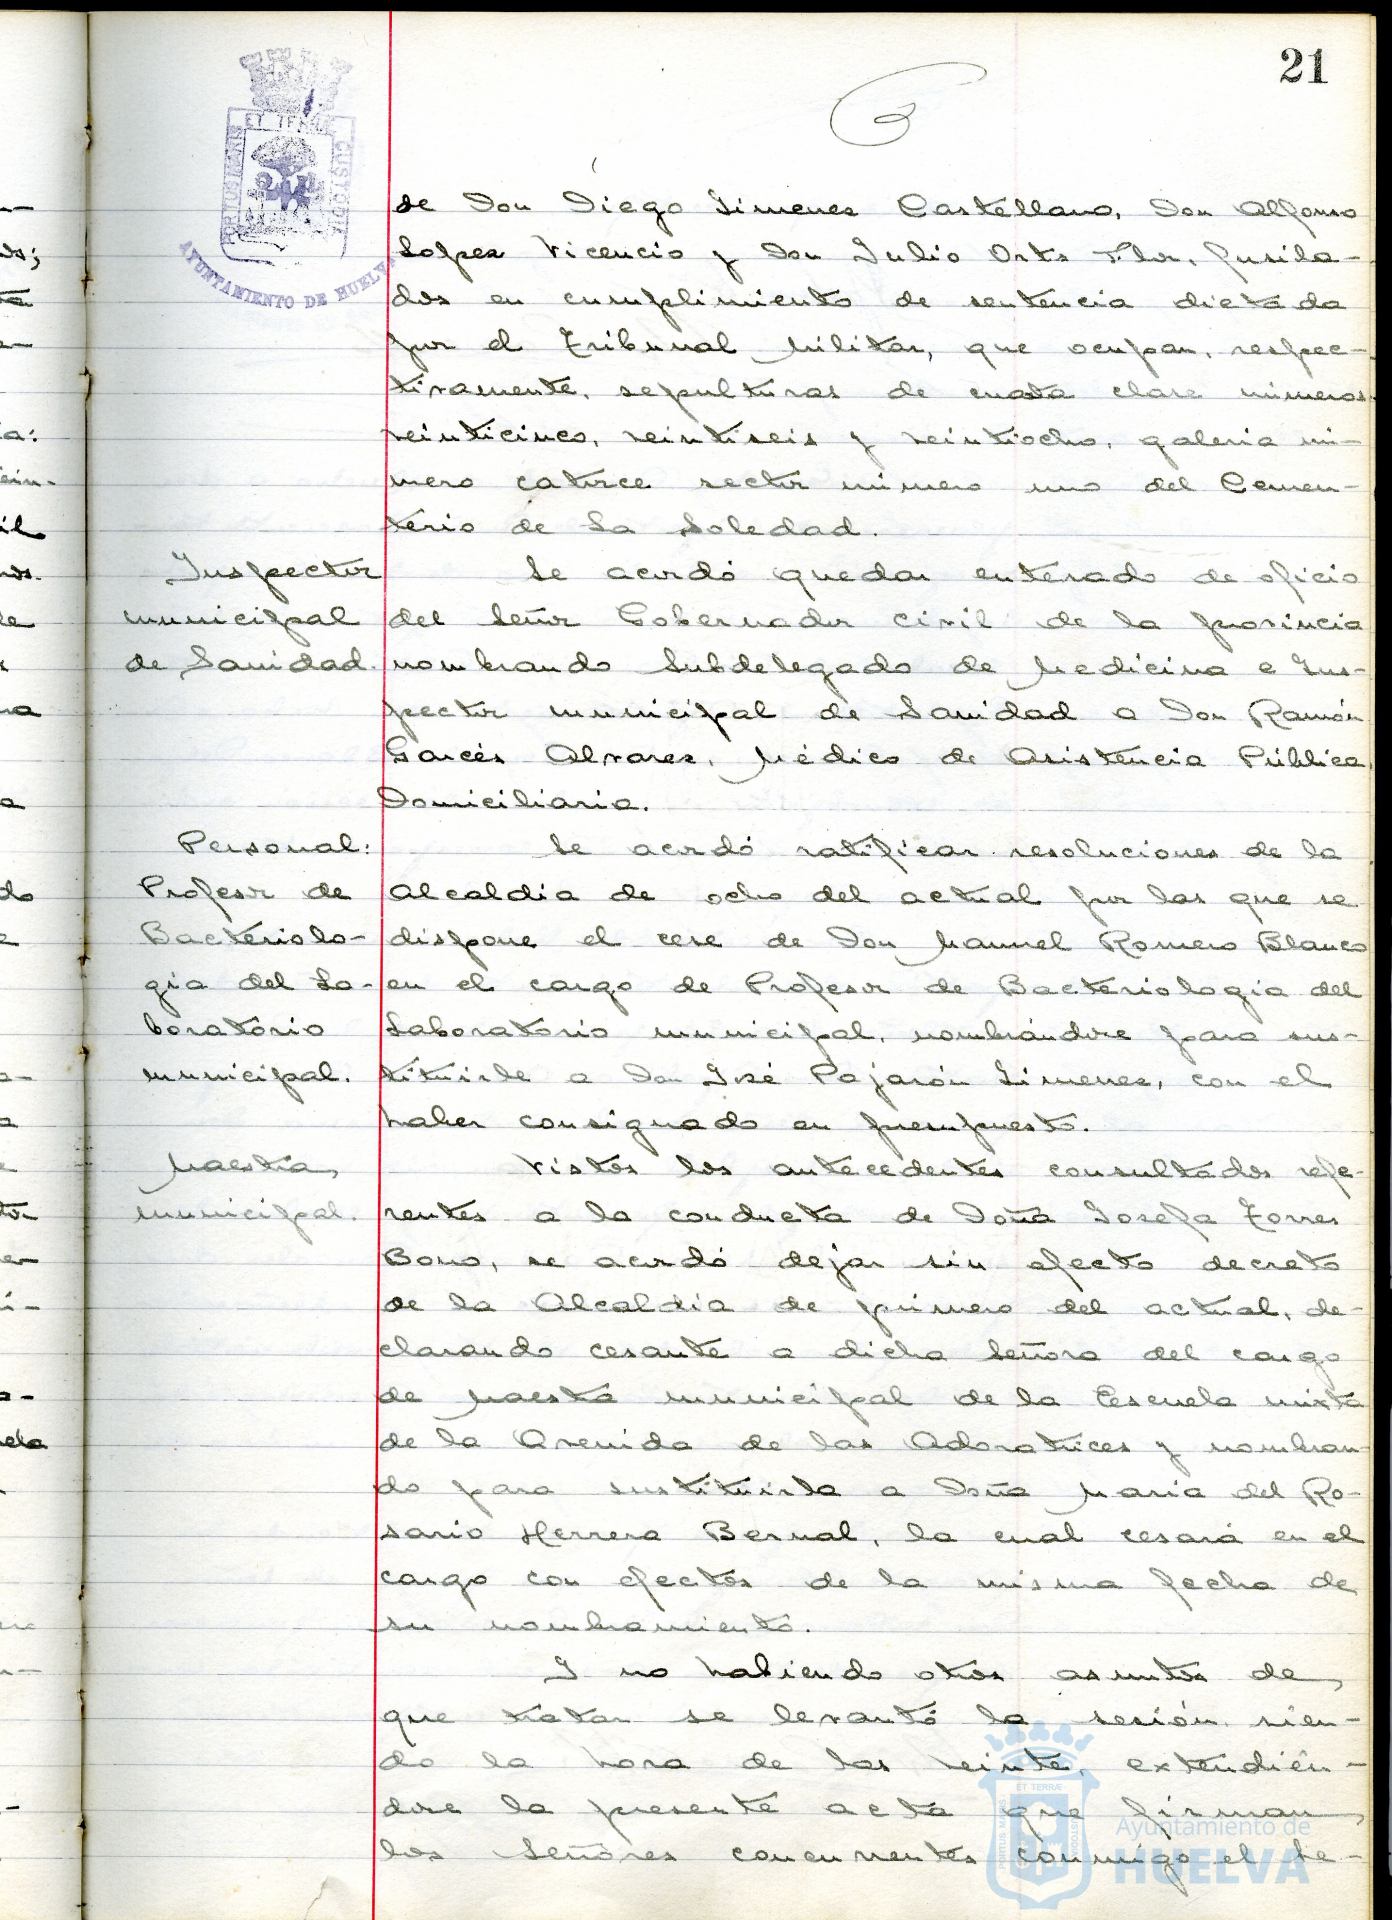 21
ET TERRÆ
PORTUS MARIS
CUSTODIA
AYUNTAMIENTO DE HUELVA
de Don Diego Jimenez Castellano, Don Alfonso
Lopez Vicencio y Don Julio Orts Flor, fusila-
dos en cumplimiento de sentencia dictada
por el Tribunal Militar, que ocupan, respec-
tivamente, sepulturas de cuarta clase números
veinticinco, veintiseis y veintiocho, galeria nú-
mero catorce sector número uno del Cemen-
terio de la Soledad.
Inspector
municipal
de Sanidad.
Se acordó quedar enterado de oficio
del Señor Gobernador Civil de la provincia
nombrando Subdelegado de Medicina e Ins-
pector municipal de Sanidad a Don Ramón
Garcés Alvarez, Médico de Asistencia Pública
Domiciliaria.
Personal:
Profesor de
Bacteriolo-
gia del La-
boratorio
municipal.
Se acordó ratificar resoluciones de la
Alcaldía de ocho del actual por las que se
dispone el cese de Don Manuel Romero Blanco
en el cargo de Profesor de Bacteriologia del
Laboratorio municipal, nombrándose para sus-
tituirle a Don José Pajarón Jimenez, con el
haber consignado en presupuesto.
Maestra
municipal.
Vistos los antecedentes consultados refe-
rentes a la conducta de Doña Josefa Torres
Bono, se acordó dejar sin efecto decreto
de la Alcaldía de primero del actual, de-
clarando cesante a dicha Señora del cargo
de Maestra municipal de la Escuela mixta
de la Avenida de las Adoratrices y nombran-
do para sustituirla a Doña Maria del Ro-
sario Herrera Bernal, la cual cesará en el
cargo con efectos de la misma fecha de
su nombramiento.
Y no habiendo otros asuntos de
que tratar se levantó la sesión, sien-
do la hora de las veinte, extendién-
dose la presente acta que firman
los Señores concurrentes conmigo el Se-
ET TERRÆ
PORTUS MARIS
CUSTODIA
Ayuntamiento de
HUELVA